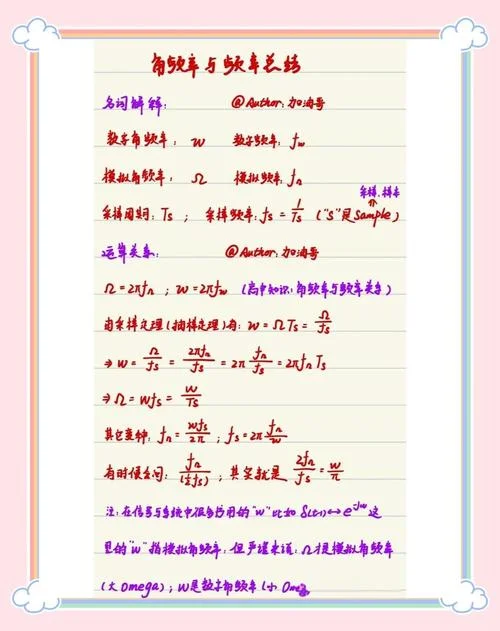 角频率与频率总结
名词解释： @Author：加油哥
数字角频率： w 数字频率：f_w
模拟角频率： Ω 模拟频率：f_Ω
采样、样本
采样周期：Ts ； 采样频率：fs = 1/Ts （"S"是Sample）
运算关系： @Author：加油哥
Ω=2πf_Ω ；w=2πf_w （高中知识：角频率与频率关系）
由采样定理（抽样定理）有：w = ΩTs = Ω/fs
⇒ w = Ω/fs = 2πf_Ω/fs = 2π f_Ω/fs = 2πf_ΩTs
⇒ Ω = wfs = w/Ts
其它变种：f_Ω = wfs/2π ；fs = 2π f_Ω/w
有时候会问：f_Ω/(½fs) ；其实就是 2f_Ω/fs = w/π
注：在信号与系统中很多的用的"w"比如 δ(t-1)↔e^-jw 这
里的"w"指模拟角频率，但严谨来说：Ω是模拟角频率
（大Omega）；w是数字角频率（小Ome